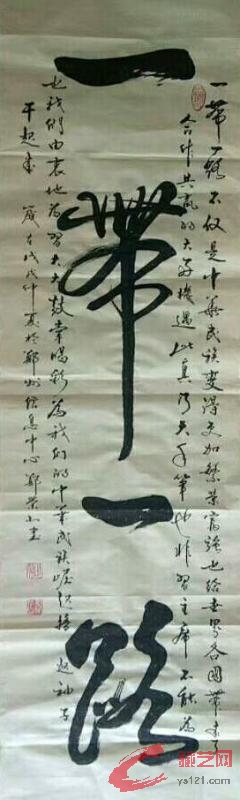 一帶一路
一带一路不仅是中华民族变得更加繁荣富强也给世界各国带来了
合作共赢的大好机遇此真乃大手笔也非習主席不能为
也我们由衷地为習大大鼓掌喝彩为我们的中华民族崛起撸起袖子
干起来
歲在戊戌仲夏於郑州信息中心郑荣
藏艺网
ys121.com